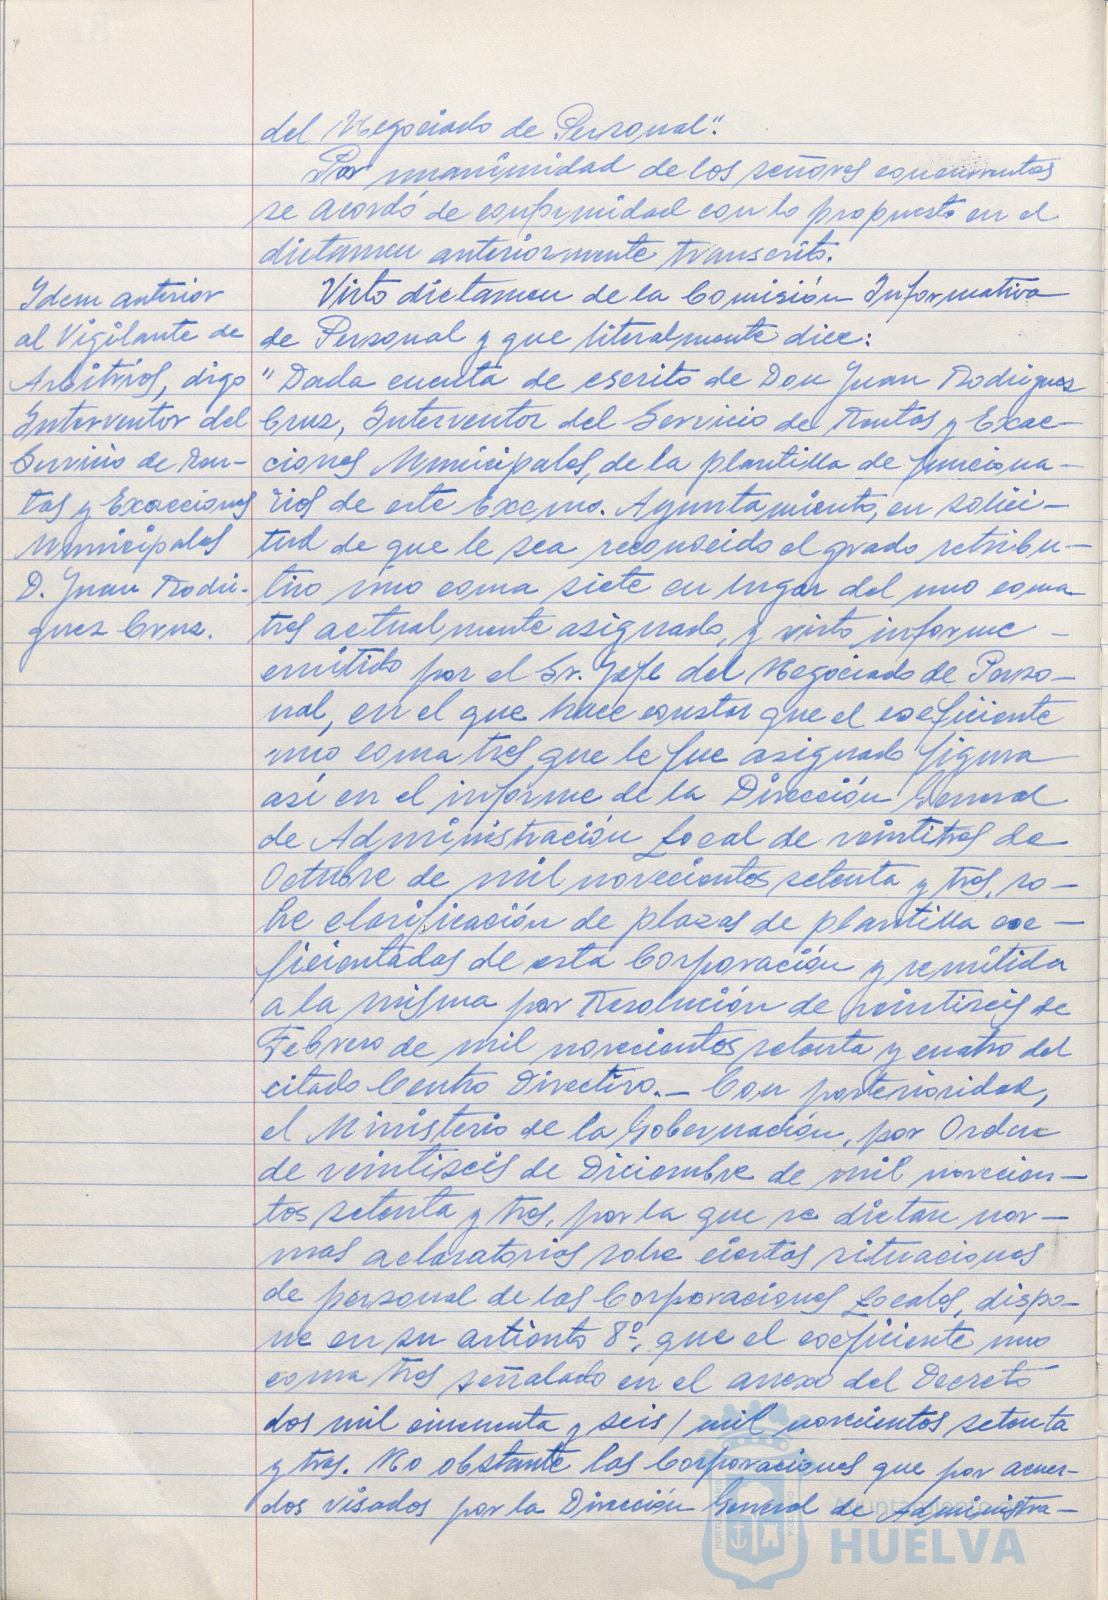 del Negociado de Personal".
Por unanimidad de los señores concurrentes
se acordó de conformidad con lo propuesto en el
dictamen anteriormente transcrito.
Idem anterior
al Vigilante de
Arbitrios, digo
Interventor del
Servicio de Ren-
tas y Exacciones
Municipales
D. Juan Rodrí-
guez Cruz.
Visto dictamen de la Comisión Informativa
de Personal y que literalmente dice:
"Dada cuenta de escrito de Don Juan Rodriguez
Cruz, Interventor del Servicio de Rentas y Exac-
ciones Municipales, de la plantilla de funciona-
rios de este Excmo. Ayuntamiento, en solici-
tud de que le sea reconocido el grado retribu-
tivo uno coma siete en lugar del uno coma
tres actualmente asignado, y visto informe -
emitido por el Sr. Jefe del Negociado de Perso-
nal, en el que hace constar que el coeficiente
uno coma tres que le fue asignado figura
así en el informe de la Dirección General
de Administración Local de veintitres de
Octubre de mil novecientos setenta y tres, so-
bre clasificación de plazas de plantilla coe-
ficientadas de esta Corporación y remitida
a la misma por Resolución de veintiseis de
Febrero de mil novecientos setenta y cuatro del
citado Centro Directivo.- Con posterioridad,
el Ministerio de la Gobernación, por Orden
de veintiseis de Diciembre de mil novecien-
tos setenta y tres, por la que se dictan nor-
mas aclaratorias sobre ciertas situaciones
de personal de las Corporaciones Locales, dispo-
ne en su artículo 8º, que el coeficiente uno
coma tres señalado en el anexo del Decreto
dos mil cincuenta y seis / mil novecientos setenta
y tres. No obstante las Corporaciones que por acuer-
dos visados por la Dirección General de Administra-
Ayuntamiento de
HUELVA